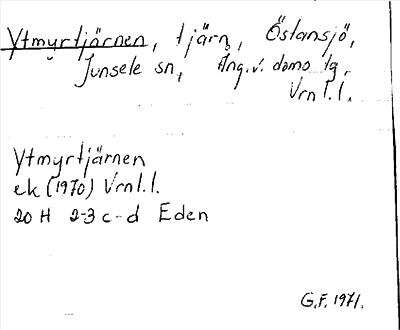 Ytmyrtjärnen, tjärn, Östansjö,
Junsele sn, Ång.v. doms lg.
Vrn l.l.
Ytmyrtjärnen
ek (1970) Vrn l.l.
20 H 2-3 c-d Eden
G.F. 1971.